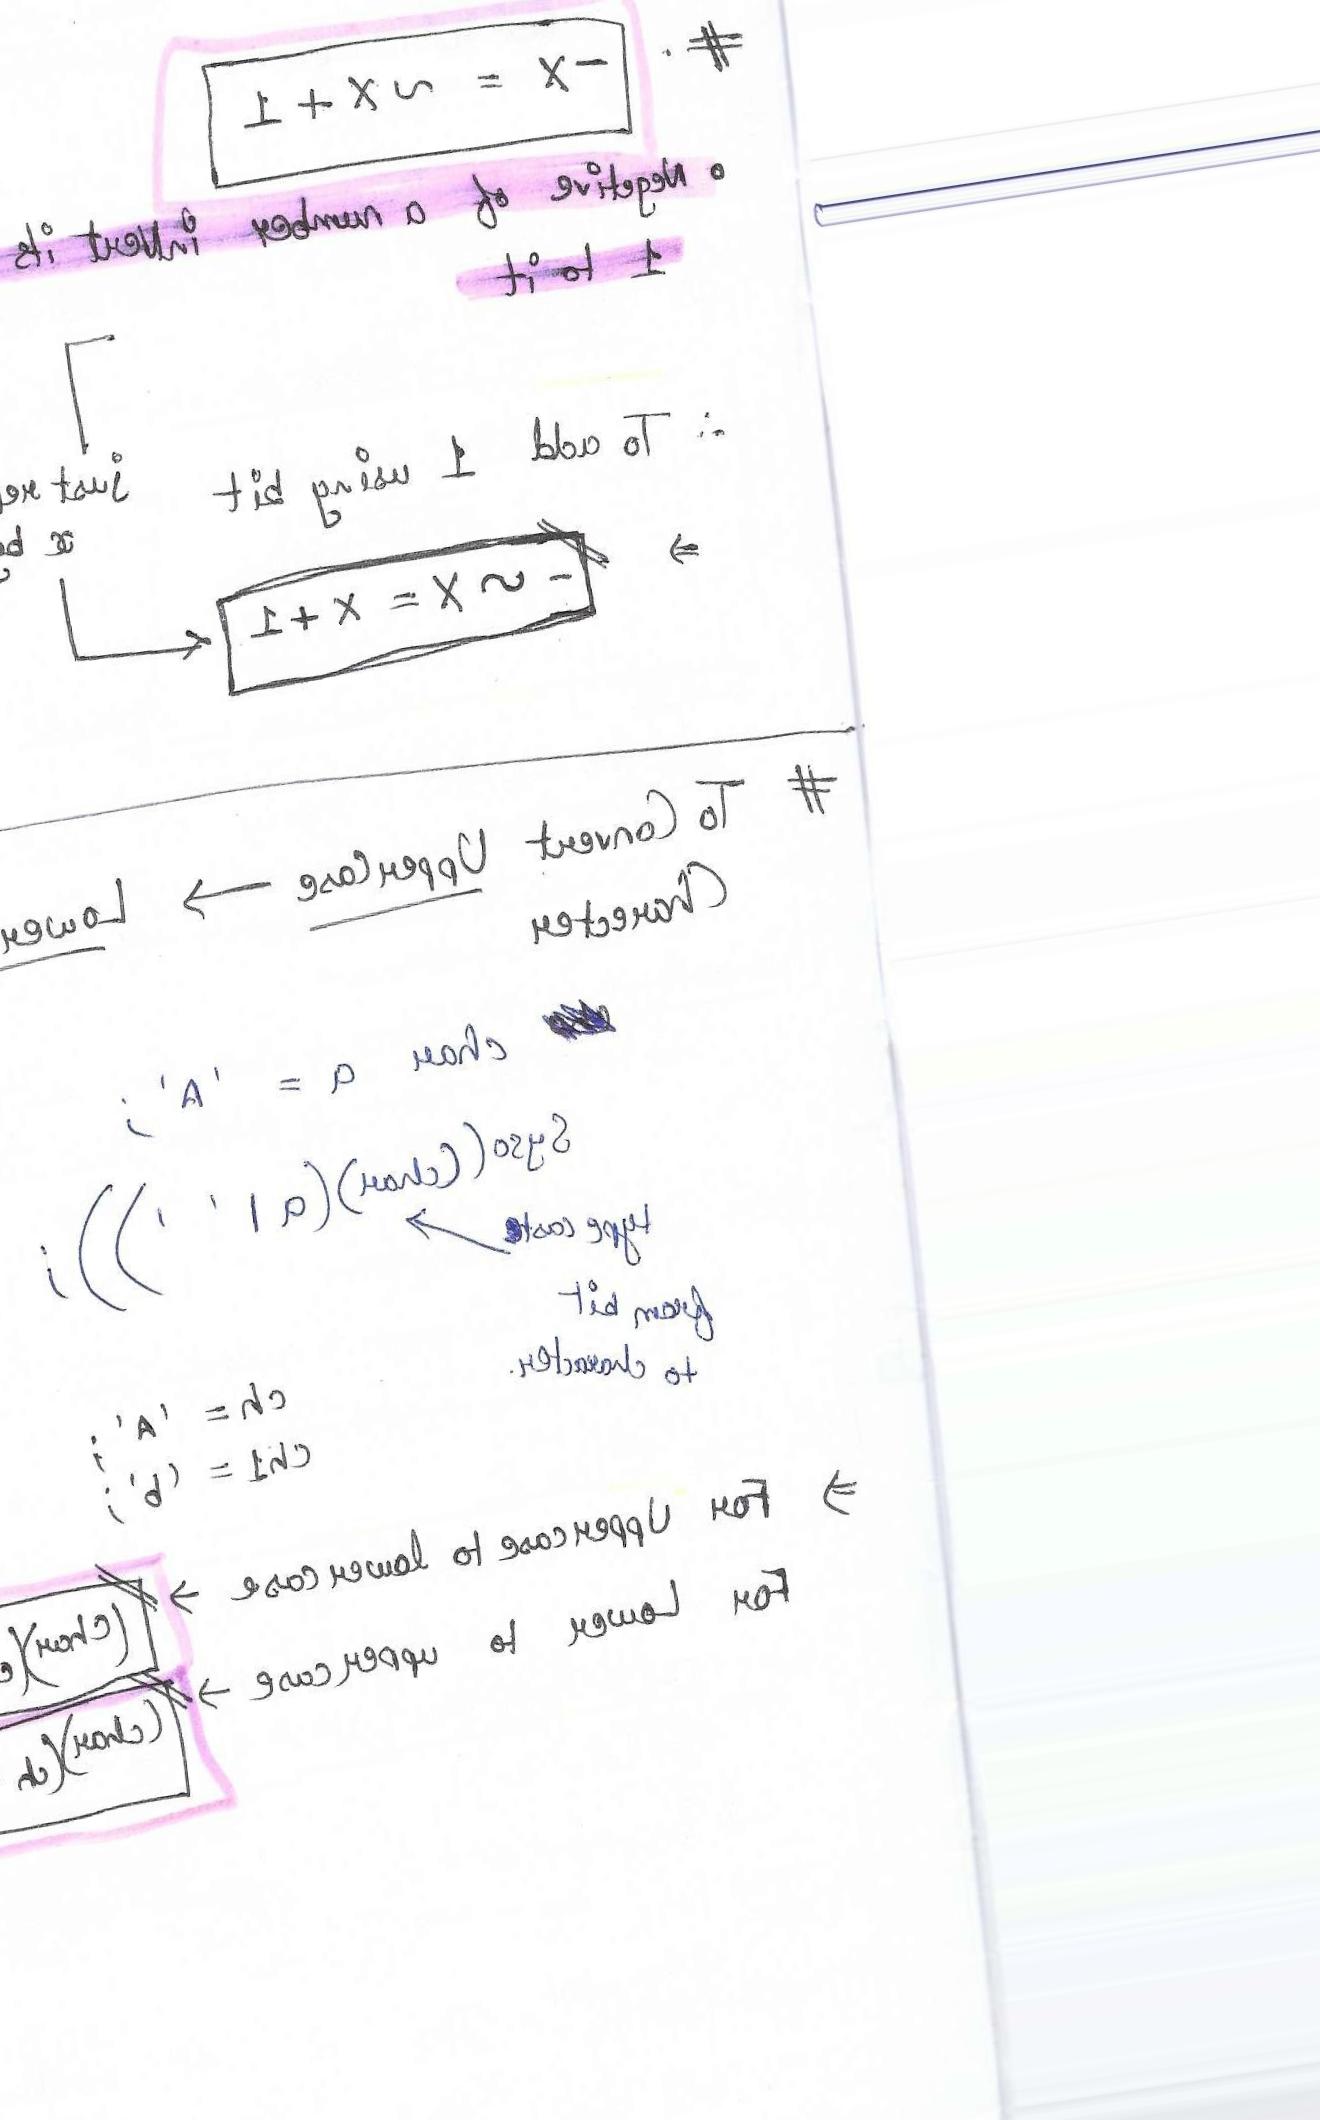 #. -X = ~X + 1
• Negetive of a number invert its
1 to it
∴ To add 1 using bit just re
x b
⇒ -~X = X + 1
# To Convert Uppercase → Lower
Charecter
char a = 'A';
Syso((char)(a | ' '));
type caste
from bit
to character.
ch = 'A';
ch1 = 'b';
⇒ For Uppercase to lower case → (char)(c
For Lower to upper case → (char)(ch